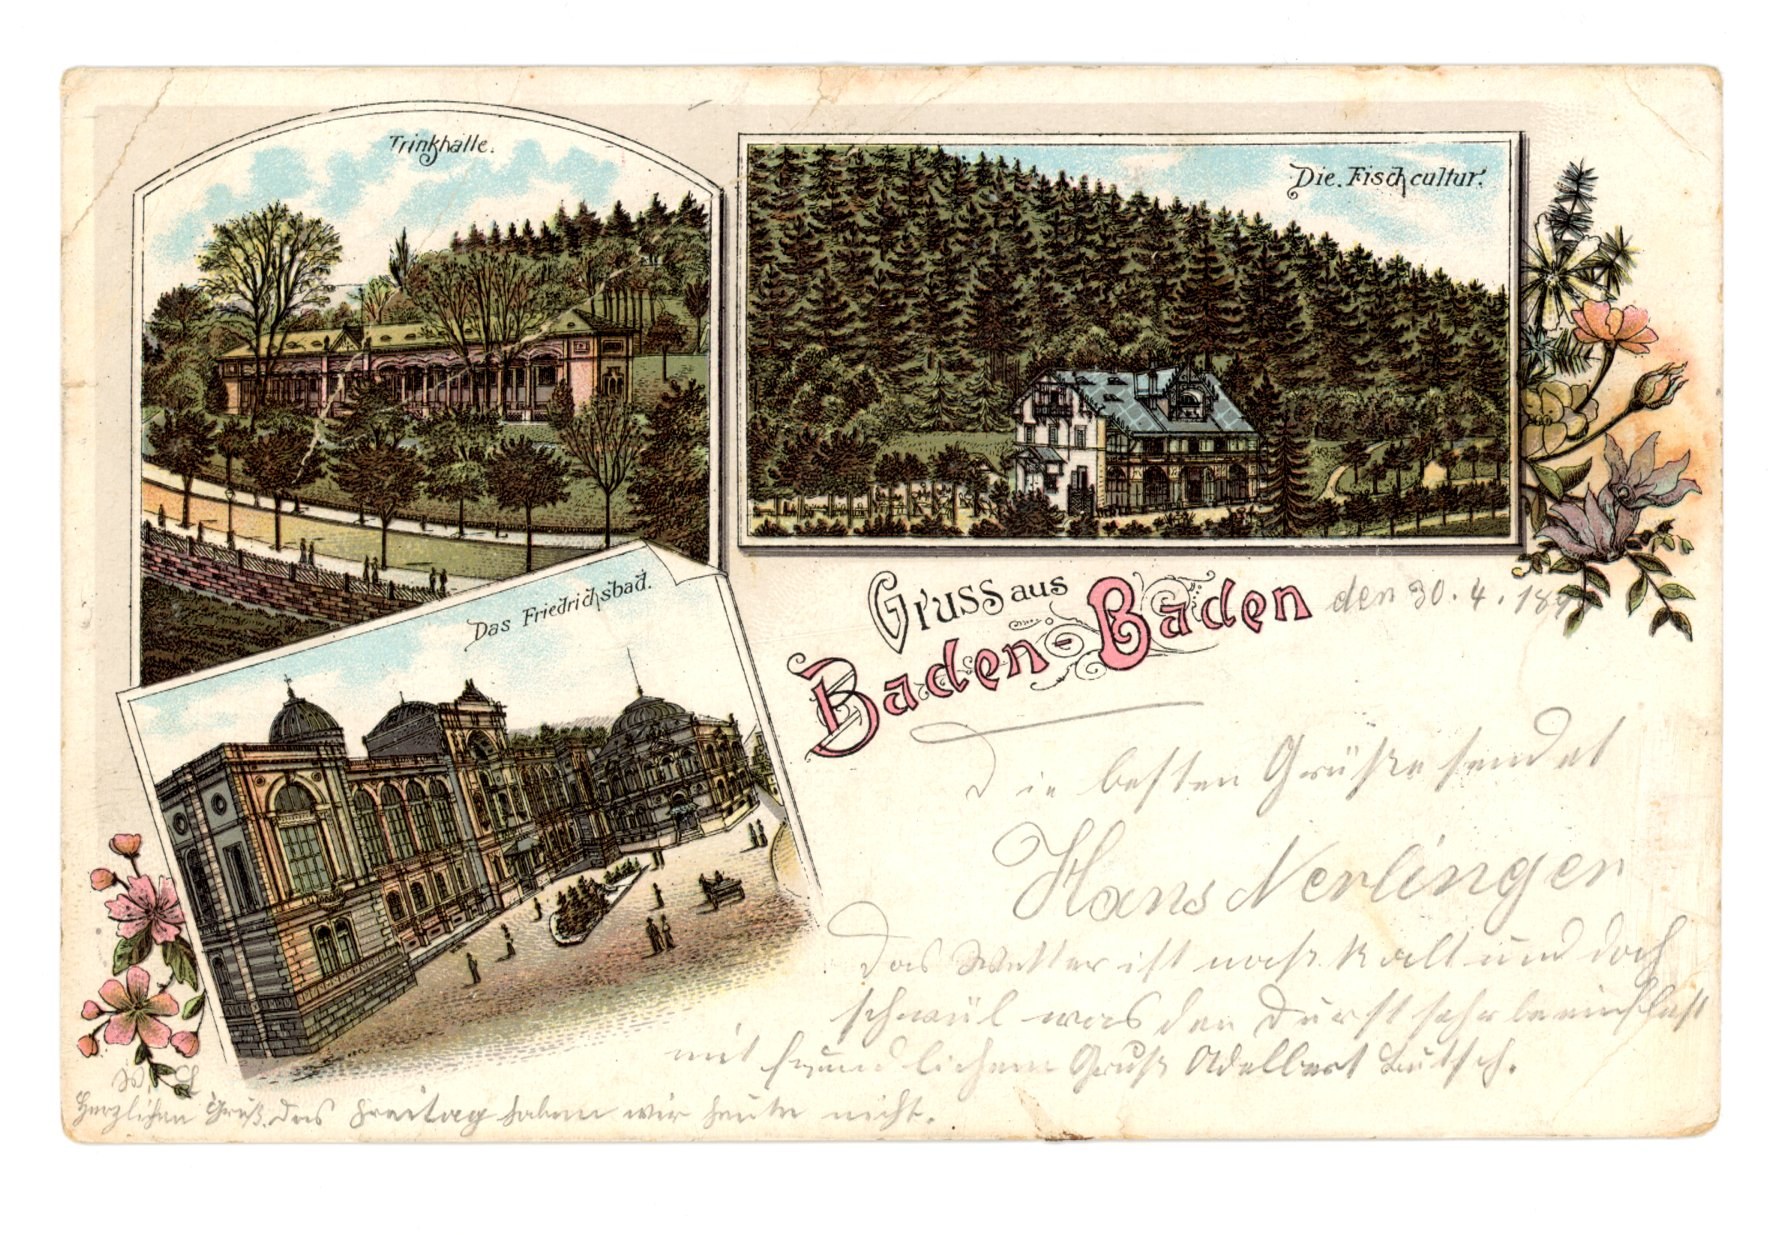 Trinkhalle.
Die Fischcultur.
Das Friedrichsbad.
Gruss aus
Baden-Baden
den 30. 4. 189
Die besten Grüße sendet
Hans Nerlinger
Das Wetter ist naß kalt und doch
schwül was den Durst sehr beeinflußt
mit freundlichem Gruß Adelbert
Herzlichen Gruß. Das Freitag haben wir heute nicht.